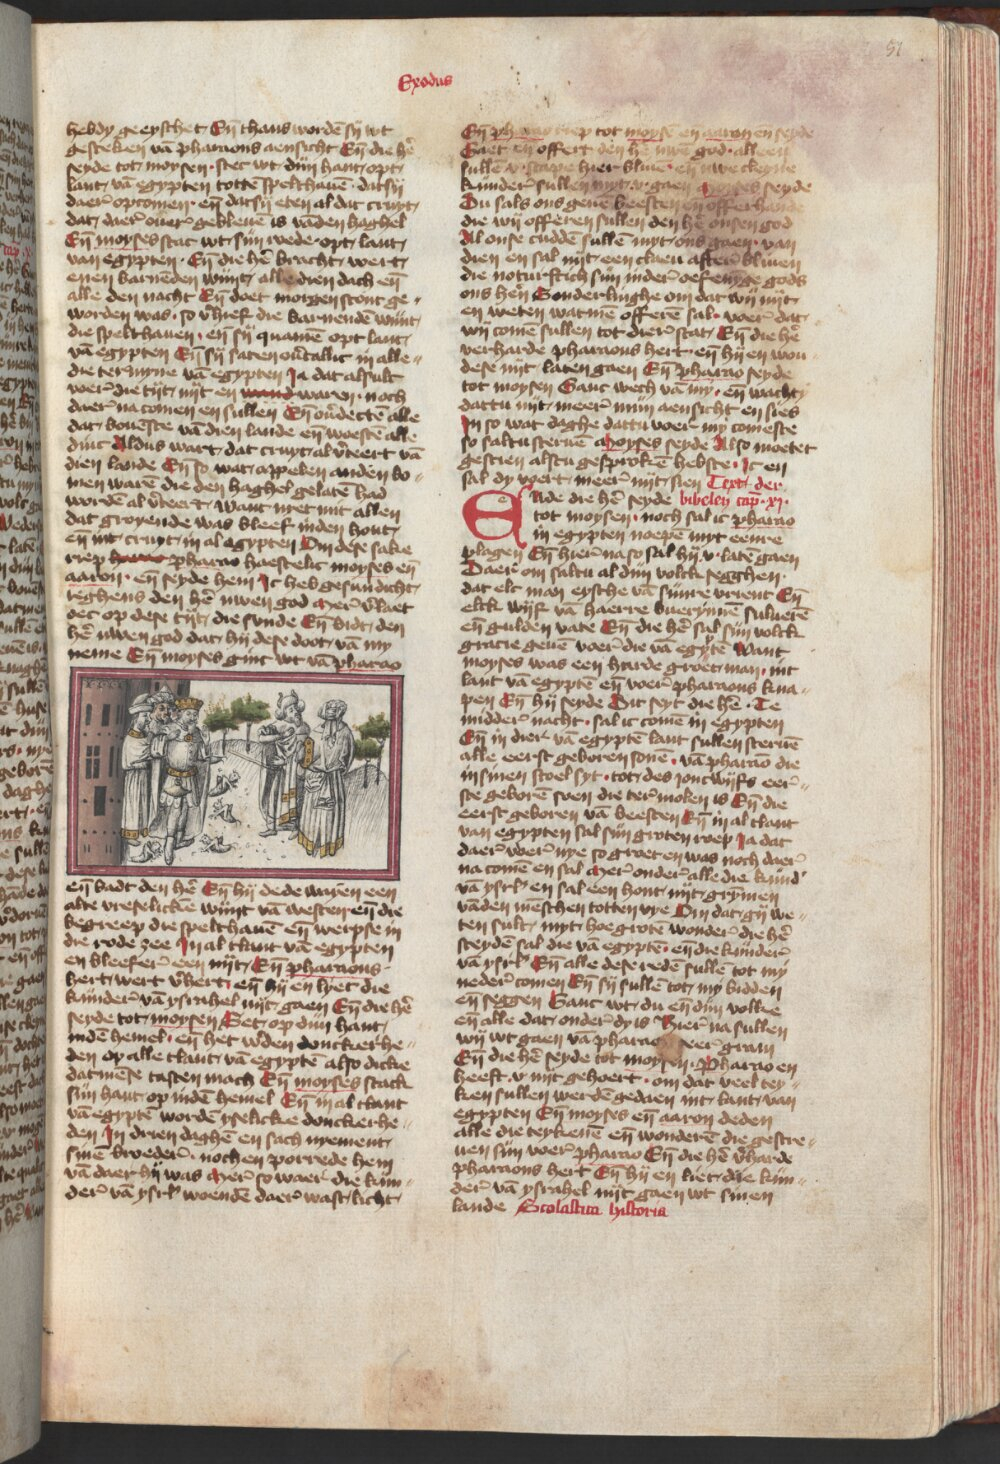 Exodus
51
hebdy geeyschet Eñ thans wordē sy wt
gesteken vā pharaons aensicht Eñ die hē
seyde tot moysen stec wt dijn hant opt
lant vā egypten totte spelthauē datsy
daer opcomen en datsy eten al dat cruyt
dat daer ouer gebleuē is vāden haghel
Eñ moyses stac wt sijn rode opt lant
van egypten Eñ die hē bracht voert
enen barnenden wijnt alle dien dach eñ
alle den nacht Eñ doet morgenstont ge-
worden was so vhief die barnende wijnt
die spelthauen en sy quamē opt lant
vā egypten Eñ sy saten oūtallic in alle-
die termyne vā egypten Ja dat alsulc
voer die tijt nijt en waren noch
daer na comen en sullen Eñ oūdectē alle
dat bouēste vā dien lande eñ woestē alle
dinc Aldus wart dat cruyt al vteert vā
dien lande Eñ so wat appelen anden bo-
men warē die den haghel gelatē had
wordē al vteert want niet mit allen
dat groyende was bleef inden hout
en int cruyt in al egypten Om dese sake
riep pharao haestelic moyses eñ
aaron en seyde hem Ic heb gesundicht
teghens den hē uwen god Mer vlaet
dec op dese tijt die sunde Eñ bidt den
hē uwen god dat hy dese doot vā my
neme Eñ moyses ginc wt vā pharao
eñ badt den hē Eñ hij dede wayen een
alte vreselickē wijnt vā westen eñ die
begreep die spelthauen eñ werpse in
die rode zee In al tlant vā egypten
en bleefer een nijt Eñ pharaons
hert wert vhert eñ hij en lyet die
kijnder vā ysrahel nijt gaen Eñ die hē
seyde tot moysen Set op dijn hant
indē hemel en het wden donckerhe-
den op alle tlant vā egyptē also dicke
datmēse tasten mach Eñ moyses stack
sijn hant op indē hemel Eñ in al tlant
vā egyptē wordē yselicke donckerhe-
den In drien daghē en sach nyement
sinē broeder noch en porrede hem
vā daer hij was Mer so waer die kijn-
der vā ysrl woendē daer wast licht
Eñ pharao riep tot moysē en aaron en seyde
Gaet en offert den hē uwē god alleen
sullē v scape hier bliuē en uwe cleyne
kijnder sullen myt v gaen Moyses seyde
Du sals ons geuē beesten en offerhande
die wij offeren sullen den hē onsen god
Al onse cuddē sullē myt ons gaen van
dien en sal nijt een claeu after bliuen
die noturftich sijn inder oefenijge gods
ons hēn Sonderlinghe om dat wij nijt
en weten watmē offerē sal voer dat
wij comē sullen tot dier stat Eñ die hē
verharde pharaons hert eñ hij en wou-
dese nijt laten gaen Eñ pharao seyde
tot moysen Ganc wech vā my eñ wacht
dattu nijt meer mijn aensicht en sies
In so wat daghe dattu voer my comeste
so saltu steruē Moyses seyde Also moetet
gescien alstu gesprokē hebste Ic en
sal dy voert meer nijt sien Text der
Ende die hē seyde bibelen cap XI
tot moysen noch sal ic pharao
in egypten noepē myt eenre
plagen Eñ hier na so sal hij v latē gaen
Daer om saltu al dijn volck segghen
dat elc man eysche vā sijnre vrient Eñ
elck wijf vā haerre buerijnnē suluerē
eñ gulden vate Eñ die hē sal sijn volck
gracie geuē voer die vā egyptē Want
moyses was een harde groet man int
lant vā egyptē eñ voer pharaons kna-
pen Eñ hij seyde Dit seyt die hē Te
midder nacht sal ic comē in egypten
Eñ in dier vā egyptē lant sullen steruē
alle eerst geboren sonē vā pharao die
in sinen stoel syt tot des joncwijfs eer-
ste geborē soen die ter molen is Eñ die
eerst geboren vā beesten Eñ in al tlant
van egypten sal sijn groten roep Ja dat
daer voer nye so groet en was noch daer
na comē en sal Mer onder alle die kijnd
vā ysrl en sal een hont nijt grijnen
vāden mēschen totten vye Om dat gij we-
ten sult myt hoe grote wonder die hē
sceyden sal die vā egyptē en die kijnder
vā ysrl Eñ alle dese redē sullē tot my
neder comen Eñ sij sullē tot my bidden
en seggen Ganc wt du eñ dijn volke
eñ alle dat onder dy is Hier na sullen
wij wt gaen vā pharao seer gram
Eñ die hē seyde tot moysen Pharao en
heeft v nijt gehoert om dat veel tey-
ken sullen werdē gedaen int lant van
egypten Eñ moyses eñ aaron deden
alle die teykenē eñ wonderē die gescre-
uen sijn voer pharao Eñ die hē vharde
pharaons hert Eñ hij en liet die kijn-
der vā ysrahel nijt gaen wt sinen
lande Scolastica historia